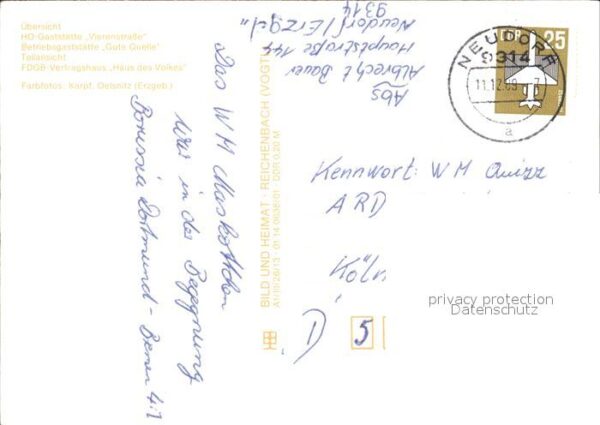 Übersicht
HO-Gaststätte „Vierenstraße"
Betriebsgaststätte „Gute Quelle"
Teilansicht
FDGB-Vertragshaus „Haus des Volkes"
Farbfotos: Karpf, Oelsnitz (Erzgeb.)
Abs
Albrecht Bauer
Hauptstraße 144
Neudorf/Erzgeb."
9314
DDR 25
NEUDORF
9314
11.12.89 - 7
a
Das WM Maskottchen
war in der Begegnung
Borussia Dortmund - Bremen 4:1
BILD UND HEIMAT · REICHENBACH (VOGTL)
DDR 0,20 M
Kennwort: WM Quizz
ARD
Köln
D 5
privacy protection
Datenschutz